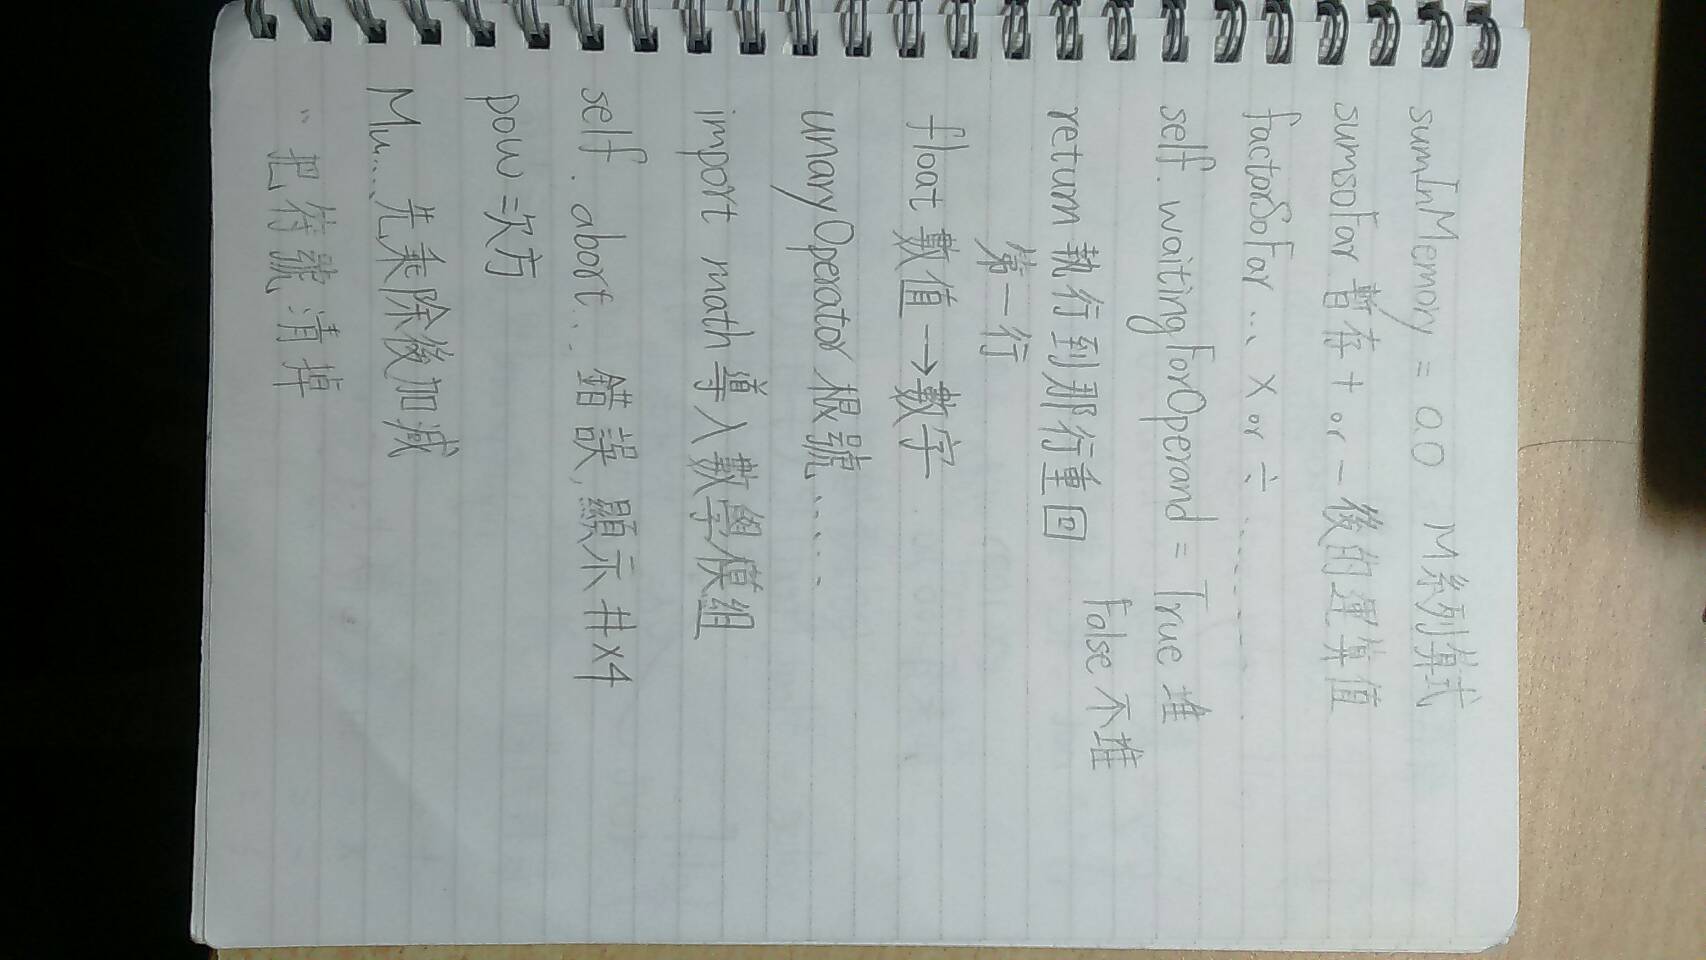 sumInMemory = 0.0 M系列算式
sumsoFar 暫存 + or - 後的運算值
factorSoFar ... × or ÷ ........
self.waitingForOperand = True 堆
False 不堆
return 執行到那行重回
第一行
float 數值→數字
unaryOperator 根號......
import math 導入數學模組
self.abort... 錯誤,顯示#×4
pow 二次方
Mu.... 先乘除後加減
" 把符號清掉